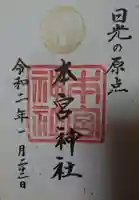 日光の原点
本宮神社
本宮神社
令和二年一月二十二日